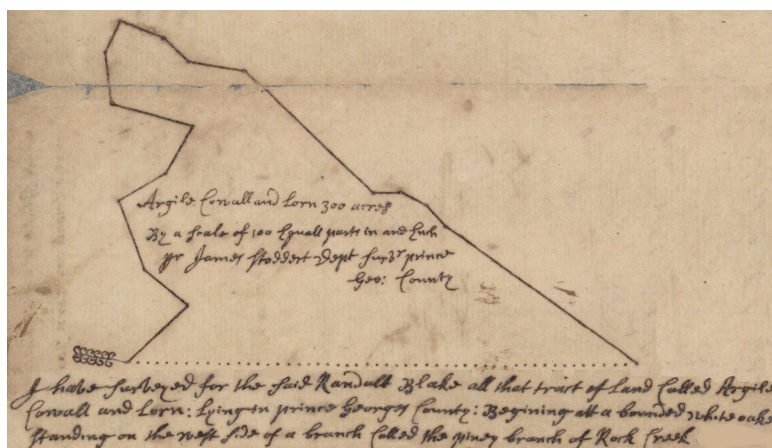 Argile Cowall and Lorn 300 acres
By a scale of 100 Equall parts in and Inch
pr James Stoddert Dept Survr prince
Geo: County
I have surveyed for the said Randall Blake all that tract of Land Called Argile
Cowall and Lorn: Lying in prince Georges County: Begining att a bounded white oake
standing on the west side of a branch Called the piney branch of Rock Creek